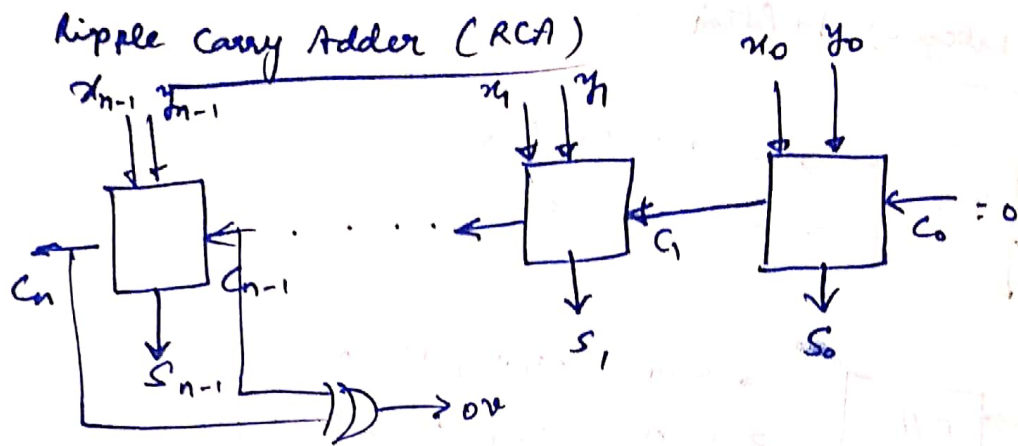 Ripple Carry Adder (RCA)
xn-1 yn-1 x1 y1 x0 y0
C1 C0 = 0
Cn Cn-1
Sn-1 S1 S0
ov